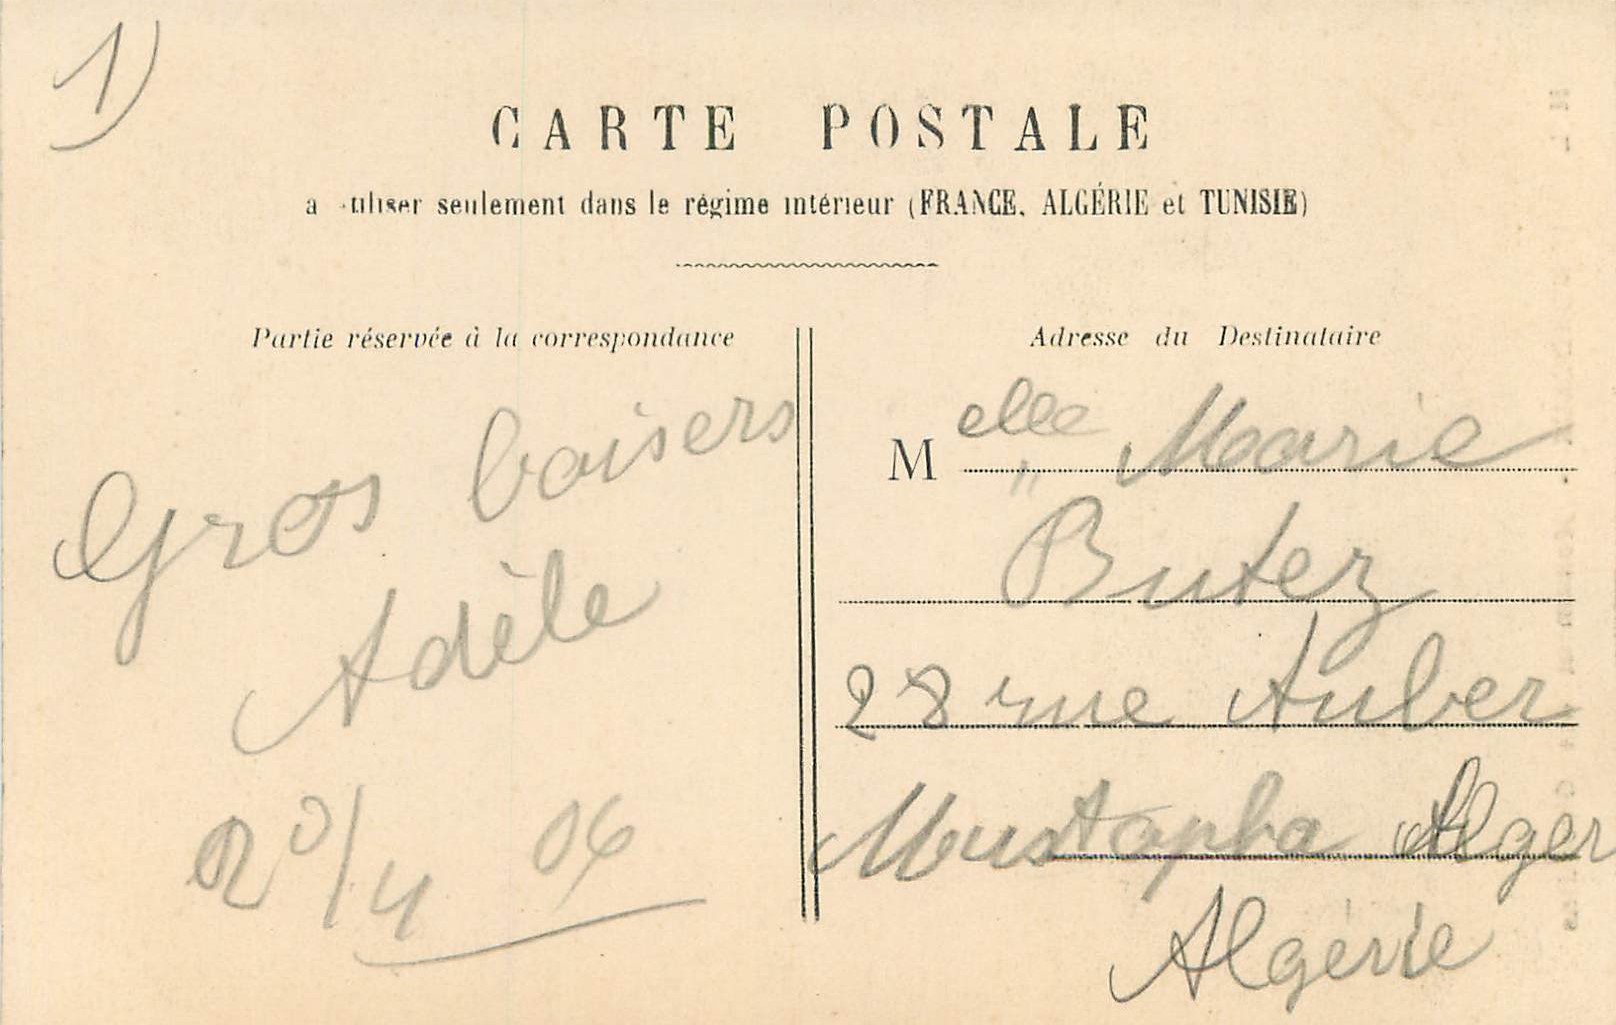 1)
CARTE POSTALE
a utiliser seulement dans le régime intérieur (FRANCE, ALGÉRIE et TUNISIE)
Partie réservée à la correspondance
Gros baisers
Adèle
20/4 06
Adresse du Destinataire
Melle Marie
Butez
28 rue Auber
Mustapha Alger
Algérie